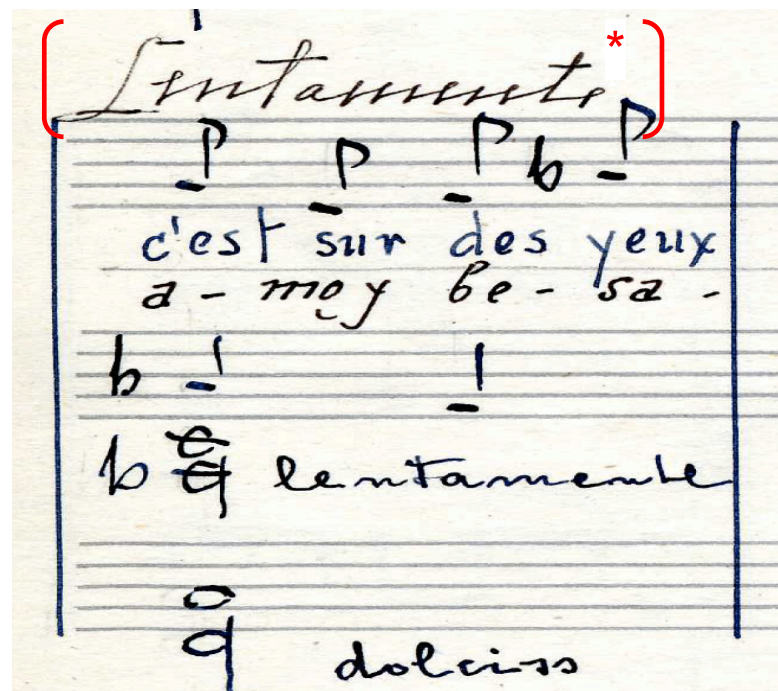 Lentamente *
c'est sur des yeux
a - moy be - sa -
lentamente
dolciss